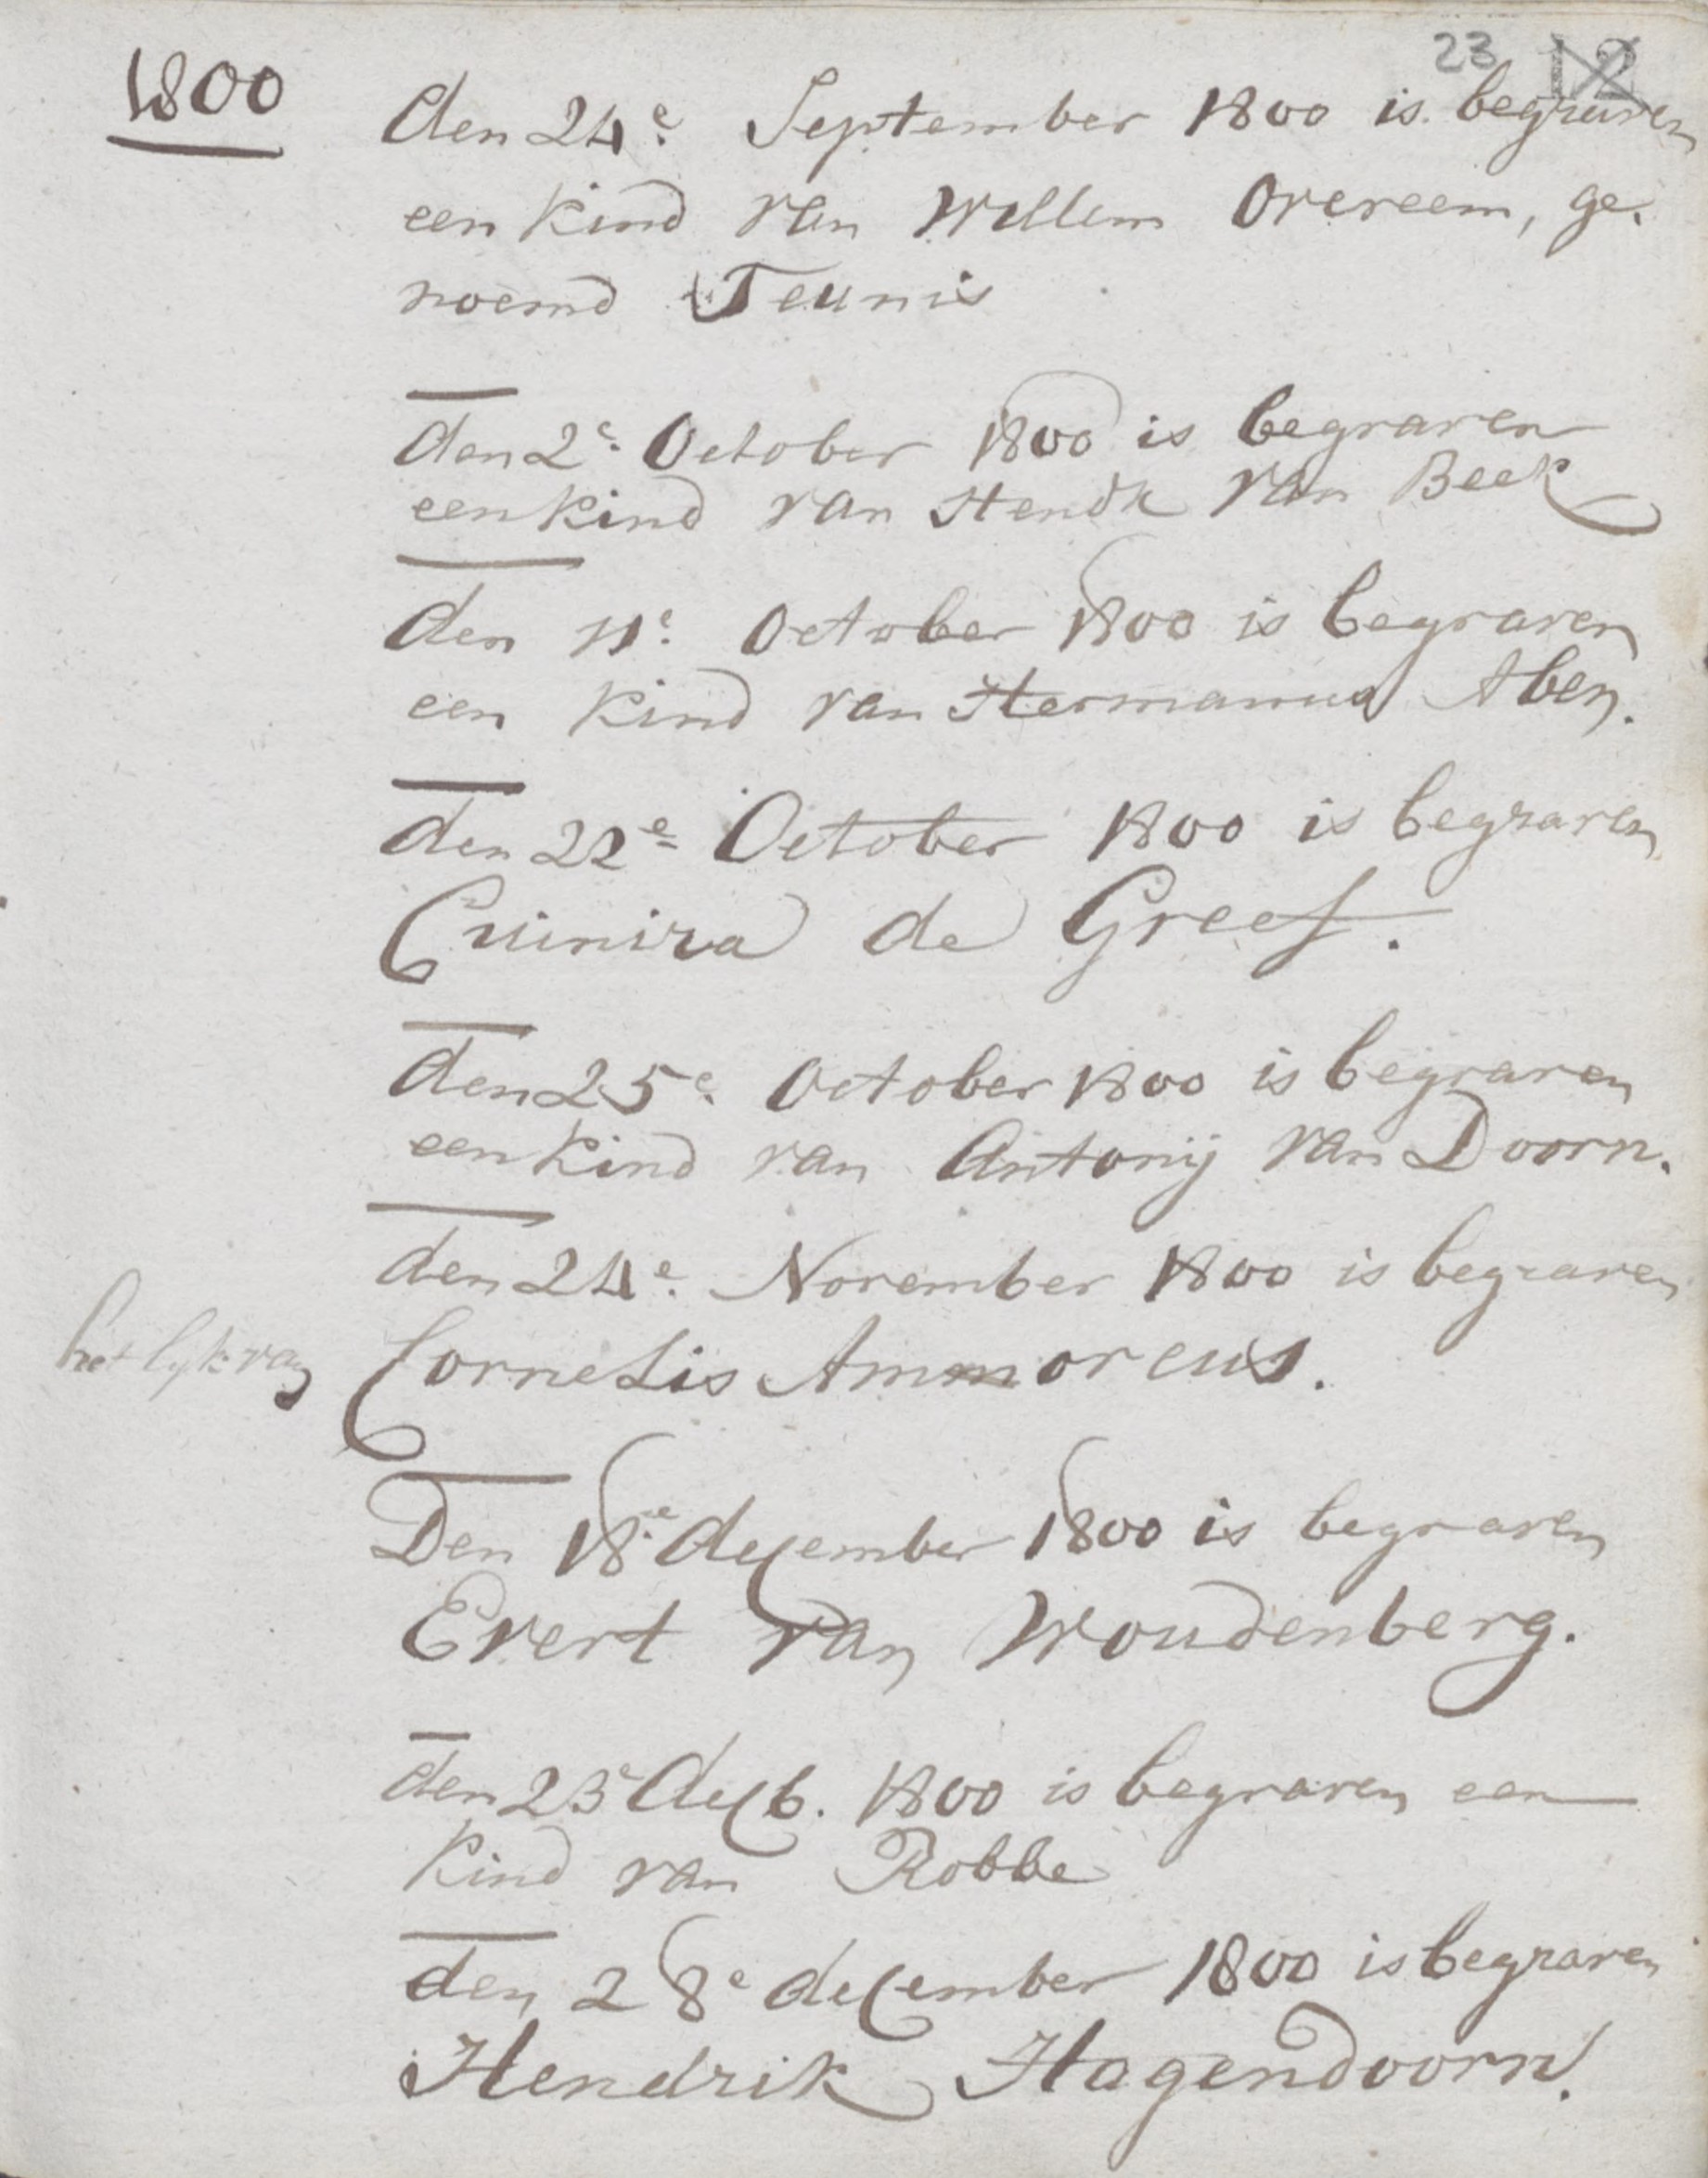 23 12
1800
den 24e September 1800 is begraven
een kind van Willem Overeem, ge.
noemd Teunis
den 2e October 1800 is begraven
een kind van Hendk van Beek
den 11e October 1800 is begraven
een kind van Hermanus Aben.
den 22e October 1800 is begraven
Cuinira de Greef.
den 25e October 1800 is begraven
een kind van Antonij van Doorn.
den 24e November 1800 is begraven
het lyk van Cornelis Ammoreus.
Den 18e december 1800 is begraven
Evert van Woudenberg.
den 23e decb. 1800 is begraven een
kind van Robbe
den 28e december 1800 is begraven
Hendrik Hagendoorn.